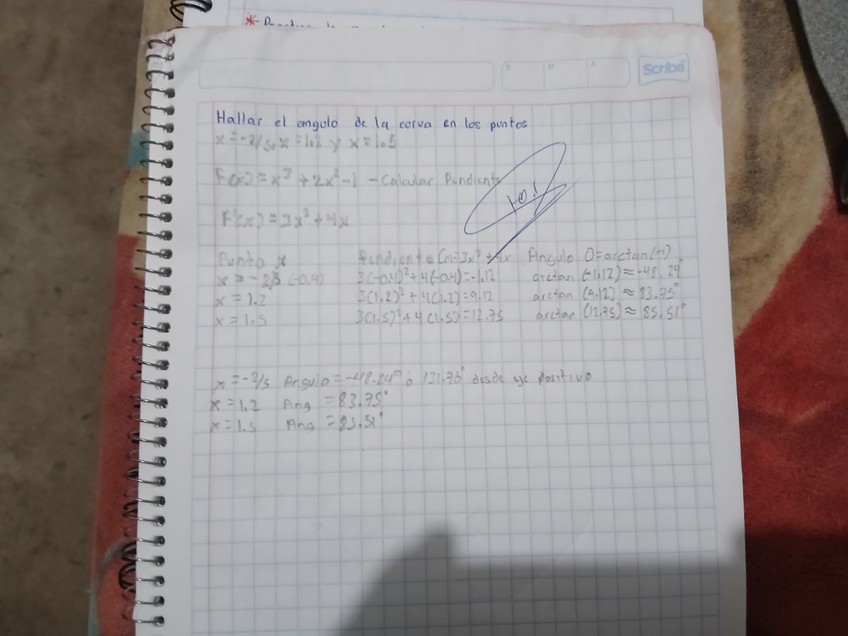 Scribe
Hallar el angulo de la curva en los puntos
x=-2/5, x=1.2 y x=1.5
F(x)=x³+2x²-1 - Calcular Pendiente
10!
F'(x)=3x²+4x
Punto x Pendiente (m=3x²+4x Angulo θ=arctan(m)
x=-2/5 (-0.4) 3(-0.4)²+4(-0.4)=-1.12 arctan (-1.12)≈-48.24°
x=1.2 3(1.2)²+4(1.2)=9.12 arctan (9.12)≈83.75°
x=1.5 3(1.5)²+4(1.5)=12.75 arctan (12.75)≈85.51°
x=-2/5 Angulo=-48.24° o 131.76° desde eje positivo
x=1.2 Ang =83.75°
x=1.5 Ang =85.51°